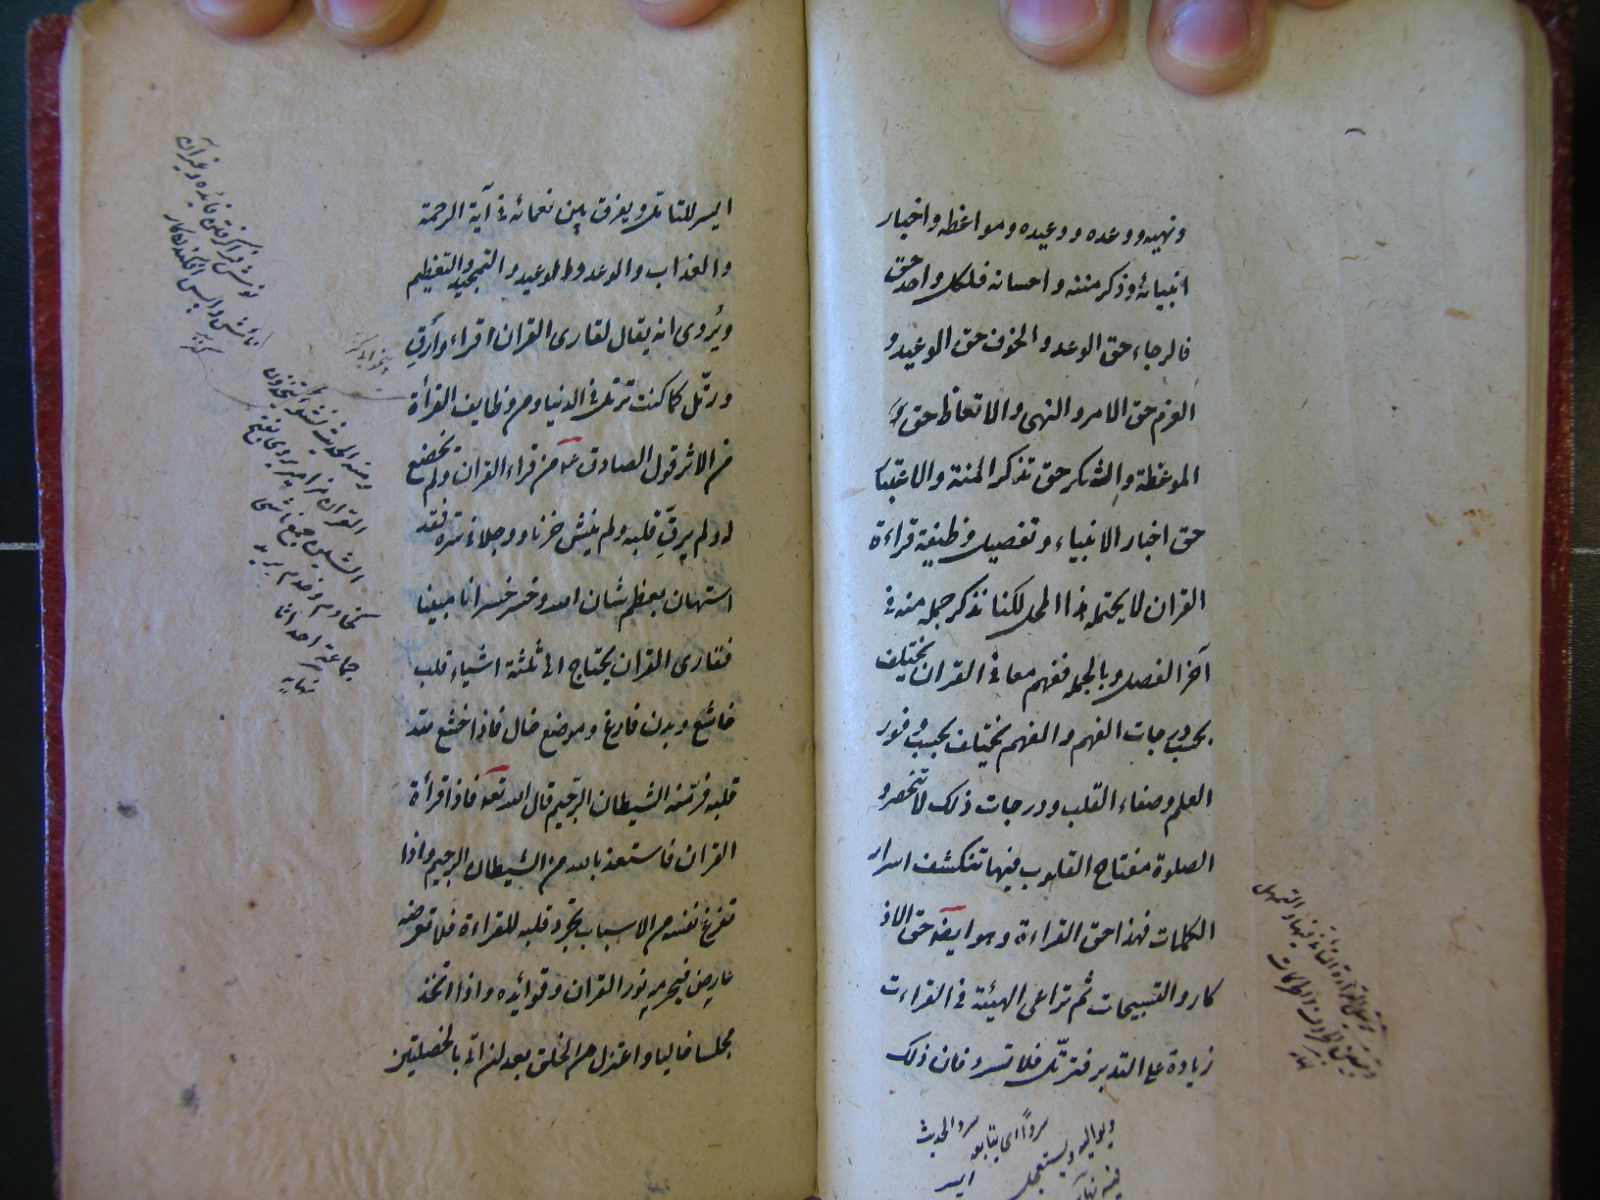 ونهيه ووعده ووعيده ومواعظه واخبار
انبيائه وذكر مننه واحسانه فلكل واحد حق
فالرجاء حق الوعد والخوف حق الوعيد و
العزم حق الامر والنهى والاتعاظ حق
الموعظة والشكر حق تذكر المنة والاعتبار
حق اخبار الانبياء وتفصيل وظيفة قراءة
القران لا يحتمله هذا المحل لكنا نذكر جملة منه فى
آخر الفصل وبالجملة ففهم معانى القران يختلف
بحسب درجات الفهم والفهم يختلف بحسب وفور
العلم وصفاء القلب ودرجات ذلك لا تنحصر و
الصلوة مفتاح القلوب فيها تنكشف اسرار
الكلمات فهذا حق القراءة وهو ايضا حق الاذ
كار والتسبيحات ثم تراعى الهيئة فى القراءت
زيادة على التدبر فترتل فلا تسرد فان ذلك
سردا اى يتابعه
ويواليه ويستعجل
سرد الحديث
فيه نهاية
ايسر
ايسر للتأمل ويفرق بين نعمائه فى آية الرحمة
والعذاب والوعد والوعيد والتمجيد والتعظيم
ويُروى انه يقال لقارى القران اقراء وأرقِ
ورتّل كما كنت ترتل فى الدنيا ومن وظايف القرأة
من الاثر قول الصادق ع من قراء القران ولم يخضع
له ولم يرقّ قلبه ولم ينشئ حزنا ووجلا فى سره فقد
استهان بعظم شان الله وخسر خسرانا مبينا
فقارى القران يحتاج الى ثلثة اشياء قلب
خاشع وبدن فارغ وموضع خال فاذا خشع لله
قلبه فر منه الشيطان الرجيم قال الله تعالى فاذا قرأة
القران فاستعذ بالله من الشيطان الرجيم واذا
تفرغ نفسه من الاسباب تجرد قلبه للقراءة فلا تعرضه
عارض فيحرمه نور القران وفوائده واذا اتخذ
مجلسا خاليا واعتزل من الخلق بعد ان اتى بالخصلتين
ومنه الحديث نشوا يتخذون
القران مزامير يروى بفتح
الشين جمع ناشئ
كخادم وخدم يريد
جماعة احداثا
نهاية